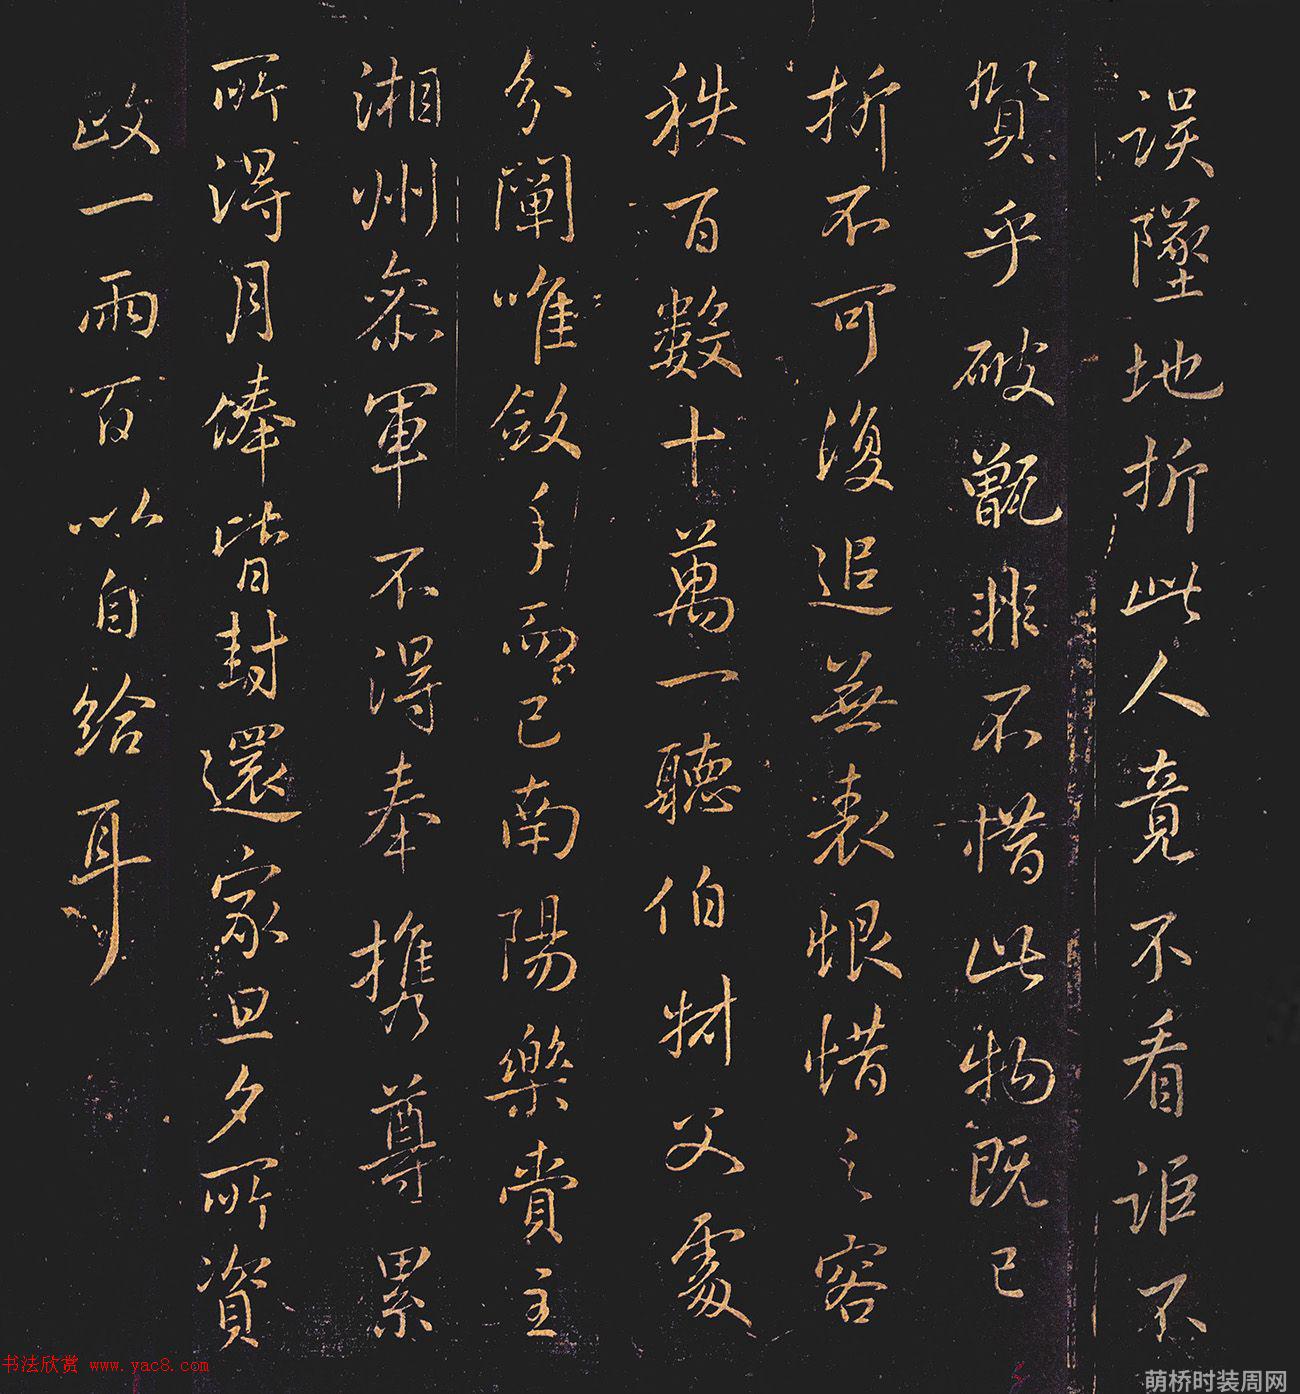 誤墜地折此人竟不看詎不
賢乎破甑非不惜此物既已
折不可復追無表恨惜之容
秩百數十萬一聽伯材父處
分闡唯斂手而已南陽樂賞主
湘州參軍不得奉攜尊累
所得月俸皆封還家旦夕所資
政一兩百以自給耳
书法欣赏 www.yac8.com
萌桥时装周网